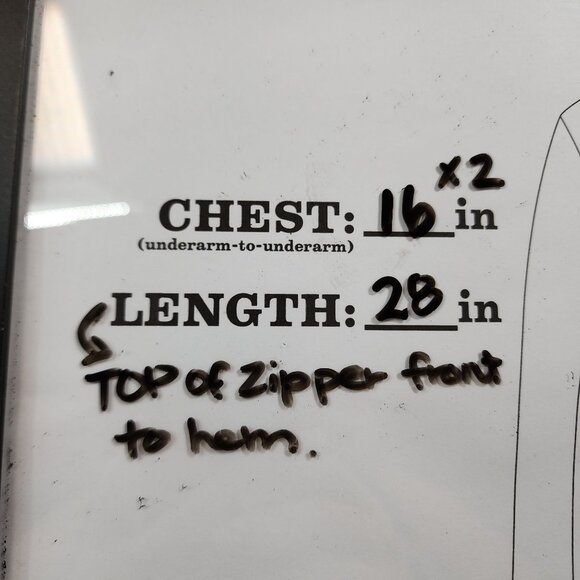 x2
CHEST: 16 in
(underarm-to-underarm)
LENGTH: 28 in
TOP of Zipper front
to hem.